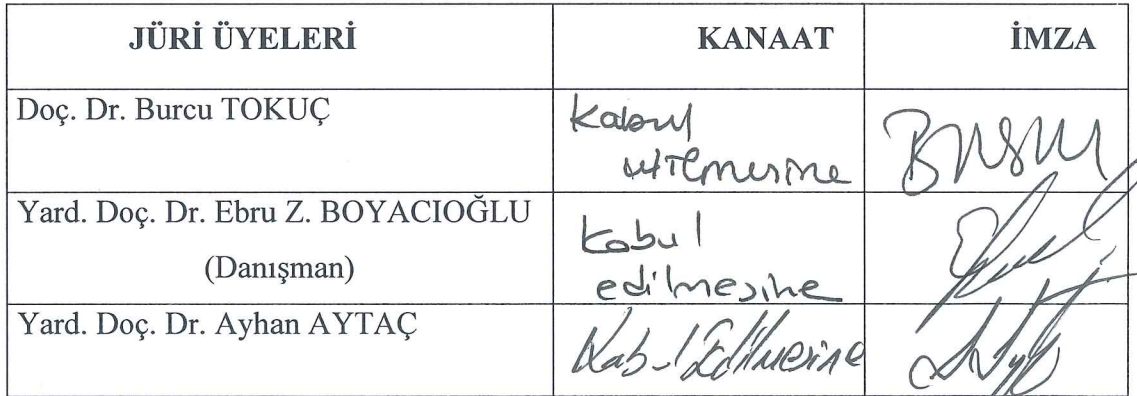 JÜRİ ÜYELERİ KANAAT İMZA
Doç. Dr. Burcu TOKUÇ Kabul
edilmesine
Yard. Doç. Dr. Ebru Z. BOYACIOĞLU Kabul
(Danışman) edilmesine
Yard. Doç. Dr. Ayhan AYTAÇ Kabul Edilmesine